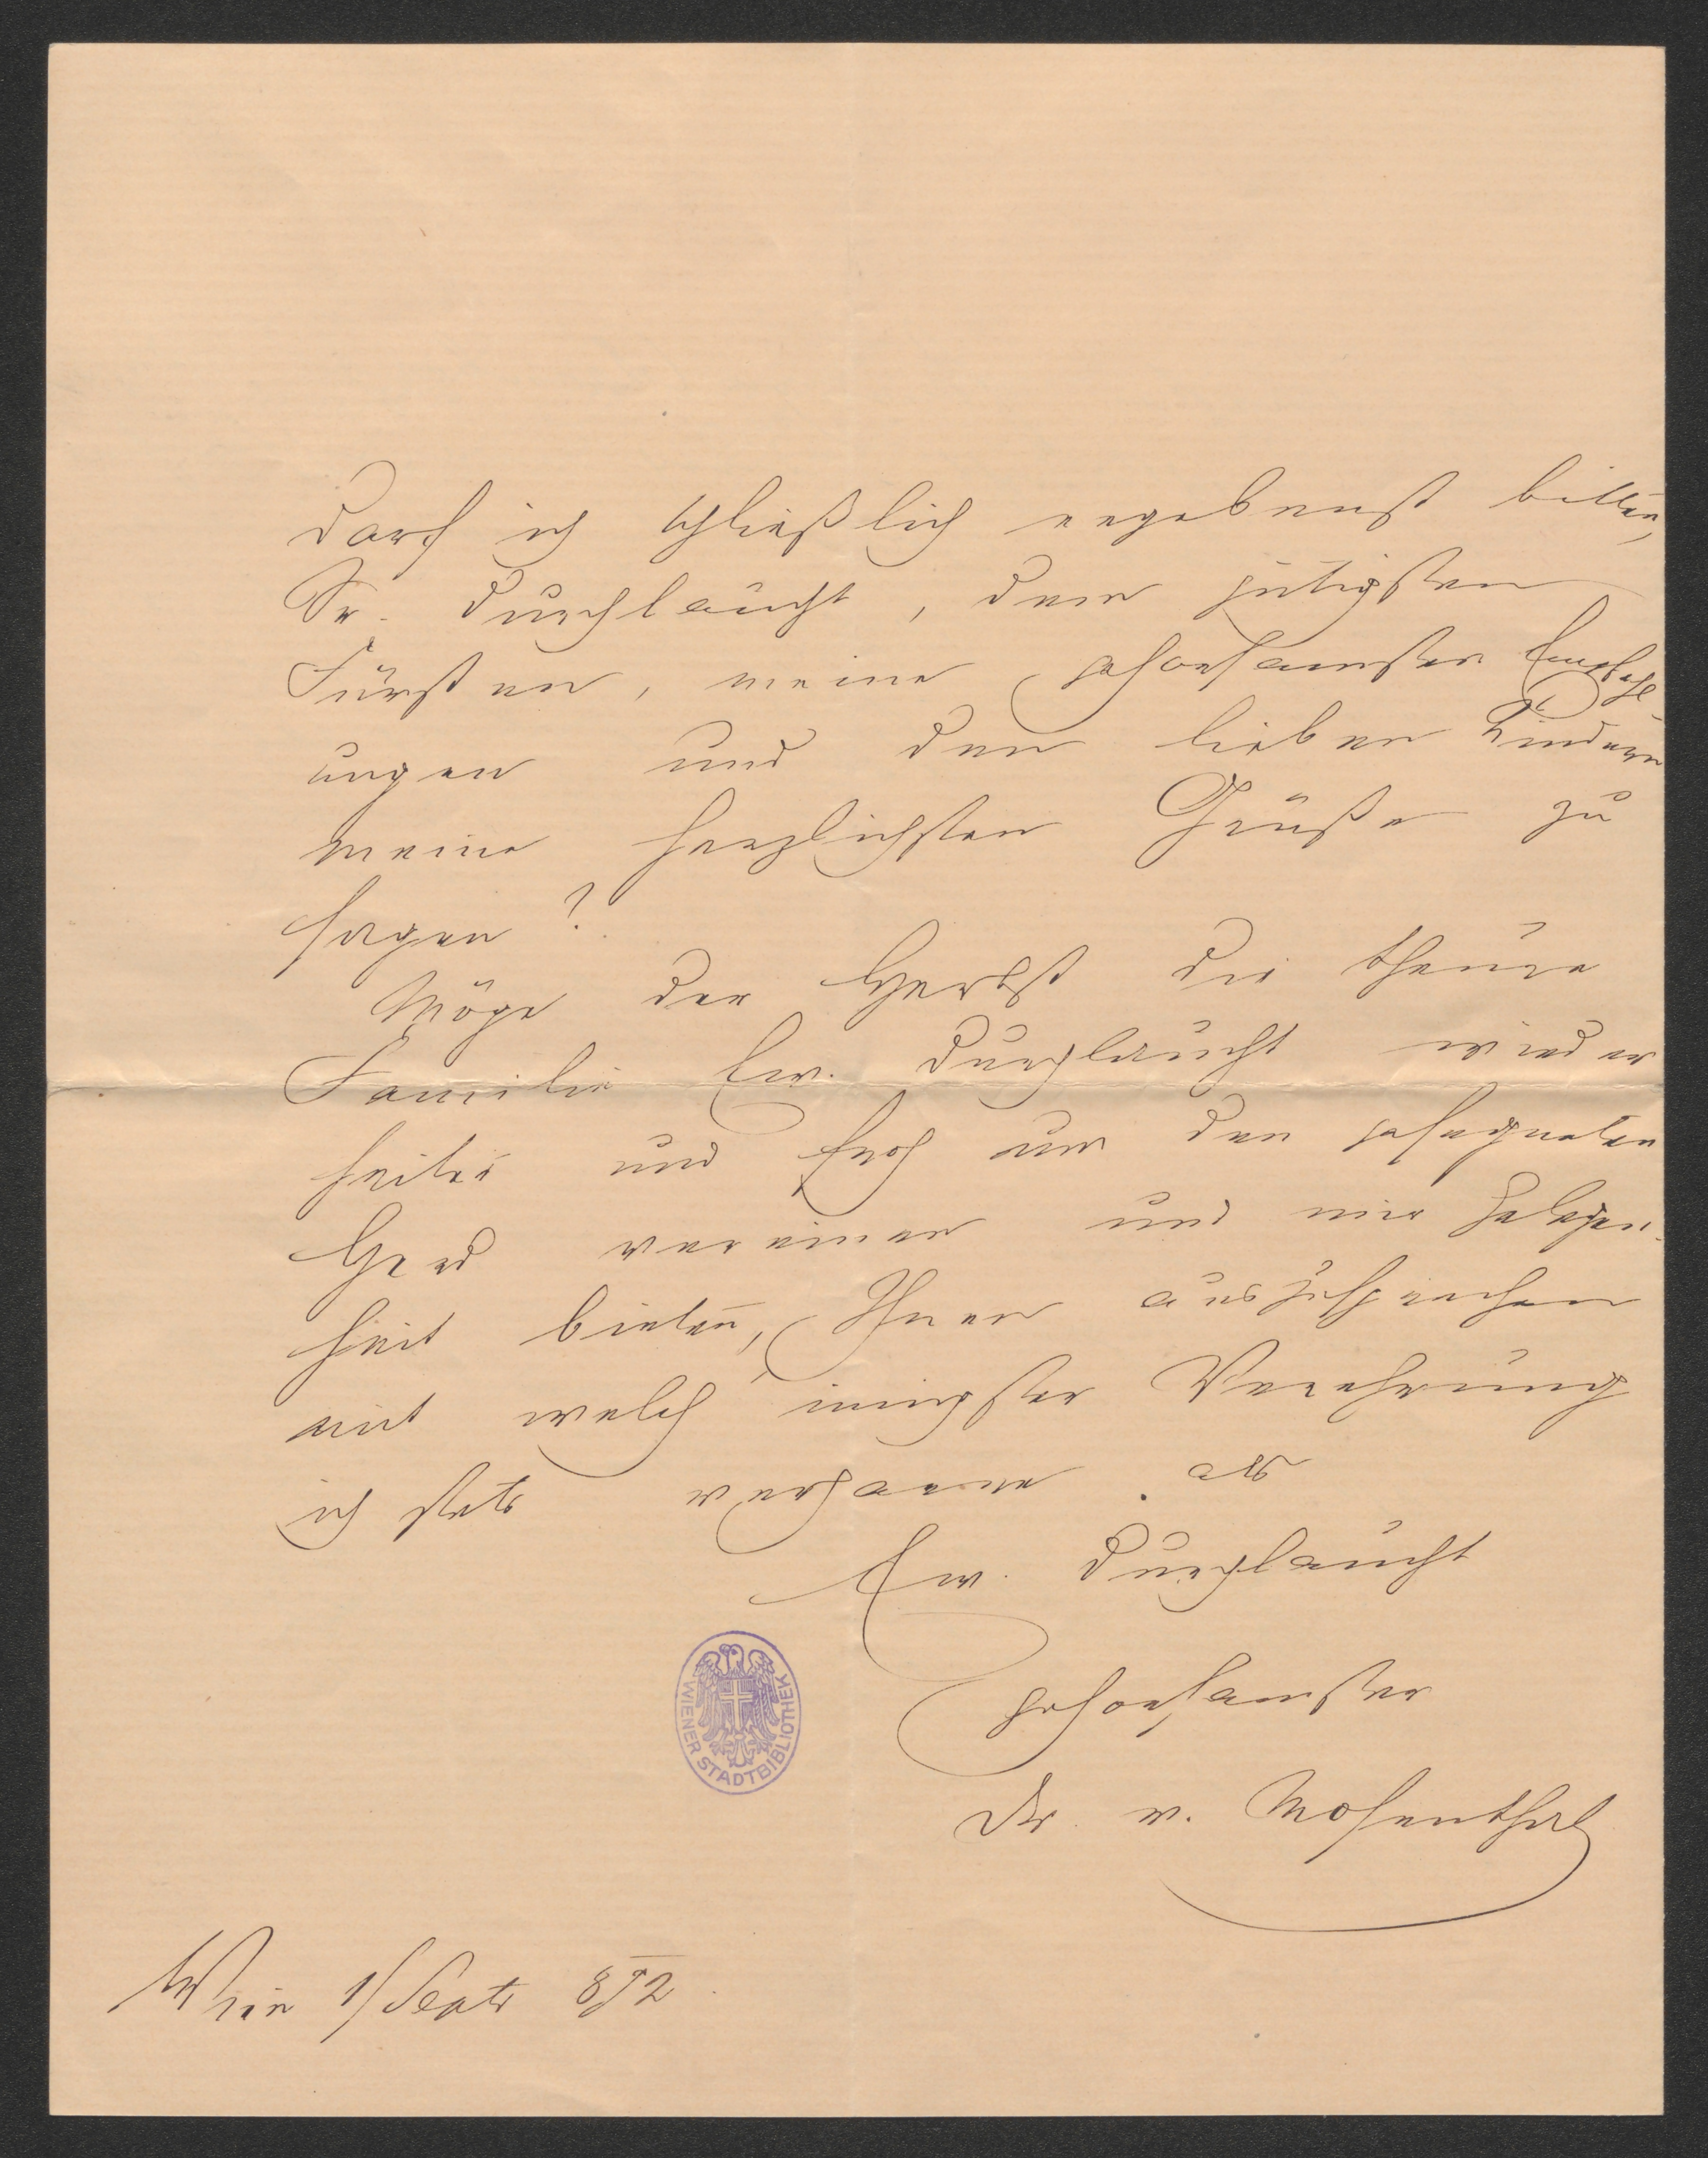 Darf ich schließlich ergebenst bitten,
Sr. Durchlaucht, dem gütigsten
Fürsten, meine gehorsamsten Empfehl-
ungen und den lieben Kindern
meine herzlichsten Grüße zu
sagen?
Möge der Herbst die theure
Familie Ew. Durchlaucht wieder
heiter und froh um den gesegneten
Herd vereinen und mir Gelegen-
heit bieten, Ihnen auszusprechen
mit welch innigster Verehrung
ich stets verharre als
Ew. Durchlaucht
gehorsamster
Dr v. Mosenthal
WIENER STADTBIBLIOTHEK
Wien 1/Septr 872